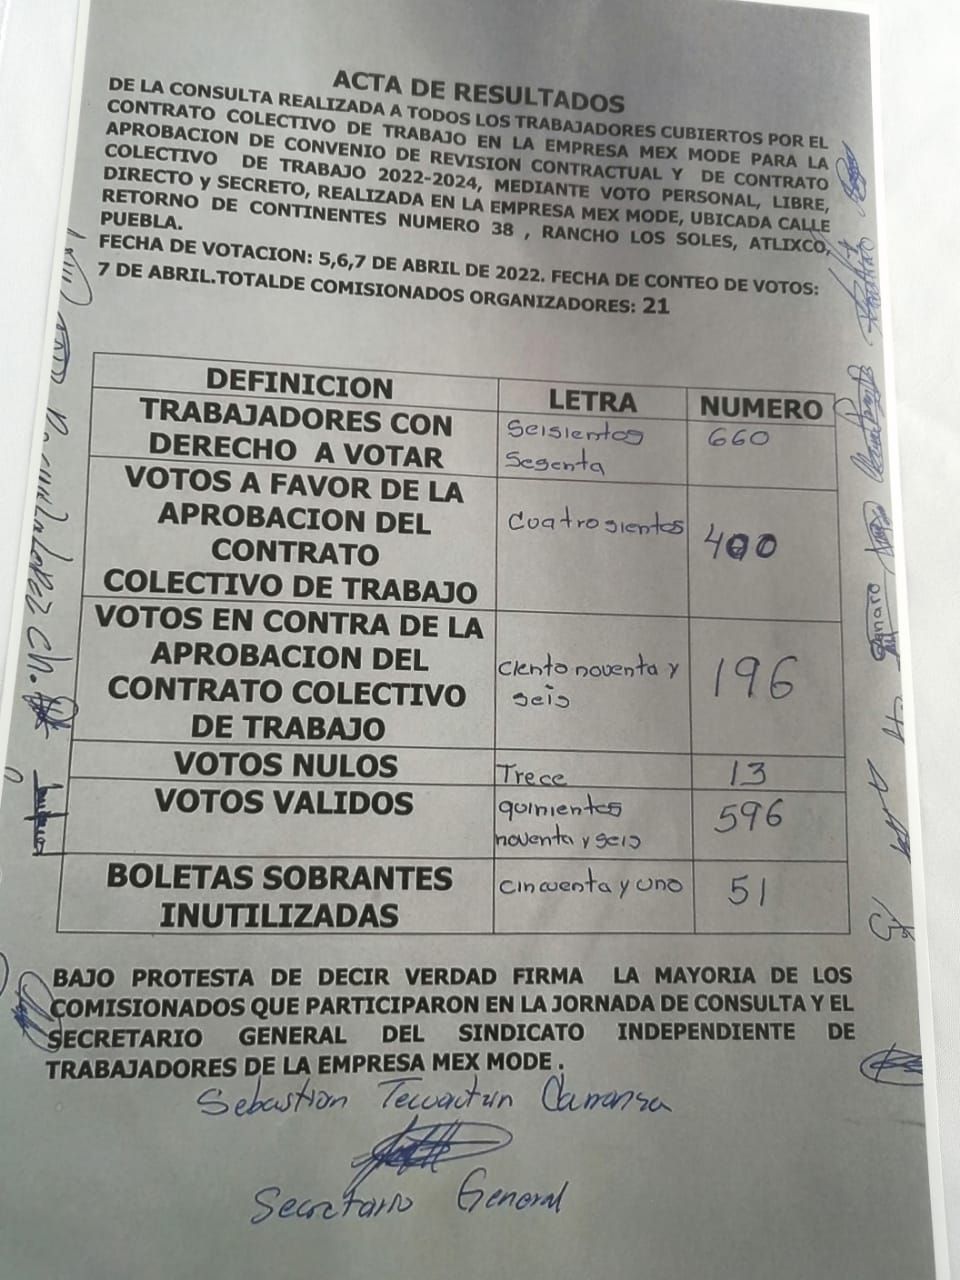 ACTA DE RESULTADOS
DE LA CONSULTA REALIZADA A TODOS LOS TRABAJADORES CUBIERTOS POR EL
CONTRATO COLECTIVO DE TRABAJO EN LA EMPRESA MEX MODE PARA LA
APROBACION DE CONVENIO DE REVISION CONTRACTUAL Y DE CONTRATO
COLECTIVO DE TRABAJO 2022-2024, MEDIANTE VOTO PERSONAL, LIBRE,
DIRECTO y SECRETO, REALIZADA EN LA EMPRESA MEX MODE, UBICADA CALLE
RETORNO DE CONTINENTES NUMERO 38 , RANCHO LOS SOLES, ATLIXCO,
PUEBLA.
FECHA DE VOTACION: 5,6,7 DE ABRIL DE 2022. FECHA DE CONTEO DE VOTOS:
7 DE ABRIL.TOTALDE COMISIONADOS ORGANIZADORES: 21
DEFINICION LETRA NUMERO
TRABAJADORES CON Seisientos 660
DERECHO A VOTAR Sesenta
VOTOS A FAVOR DE LA
APROBACION DEL Cuatrosientos 400
CONTRATO
COLECTIVO DE TRABAJO
VOTOS EN CONTRA DE LA
APROBACION DEL Ciento noventa y 196
CONTRATO COLECTIVO seis
DE TRABAJO
VOTOS NULOS Trece 13
VOTOS VALIDOS quinientos 596
noventa y seis
BOLETAS SOBRANTES cincuenta y uno 51
INUTILIZADAS
BAJO PROTESTA DE DECIR VERDAD FIRMA LA MAYORIA DE LOS
COMISIONADOS QUE PARTICIPARON EN LA JORNADA DE CONSULTA Y EL
SECRETARIO GENERAL DEL SINDICATO INDEPENDIENTE DE
TRABAJADORES DE LA EMPRESA MEX MODE .
Sebastion
Secretario General
Genaro